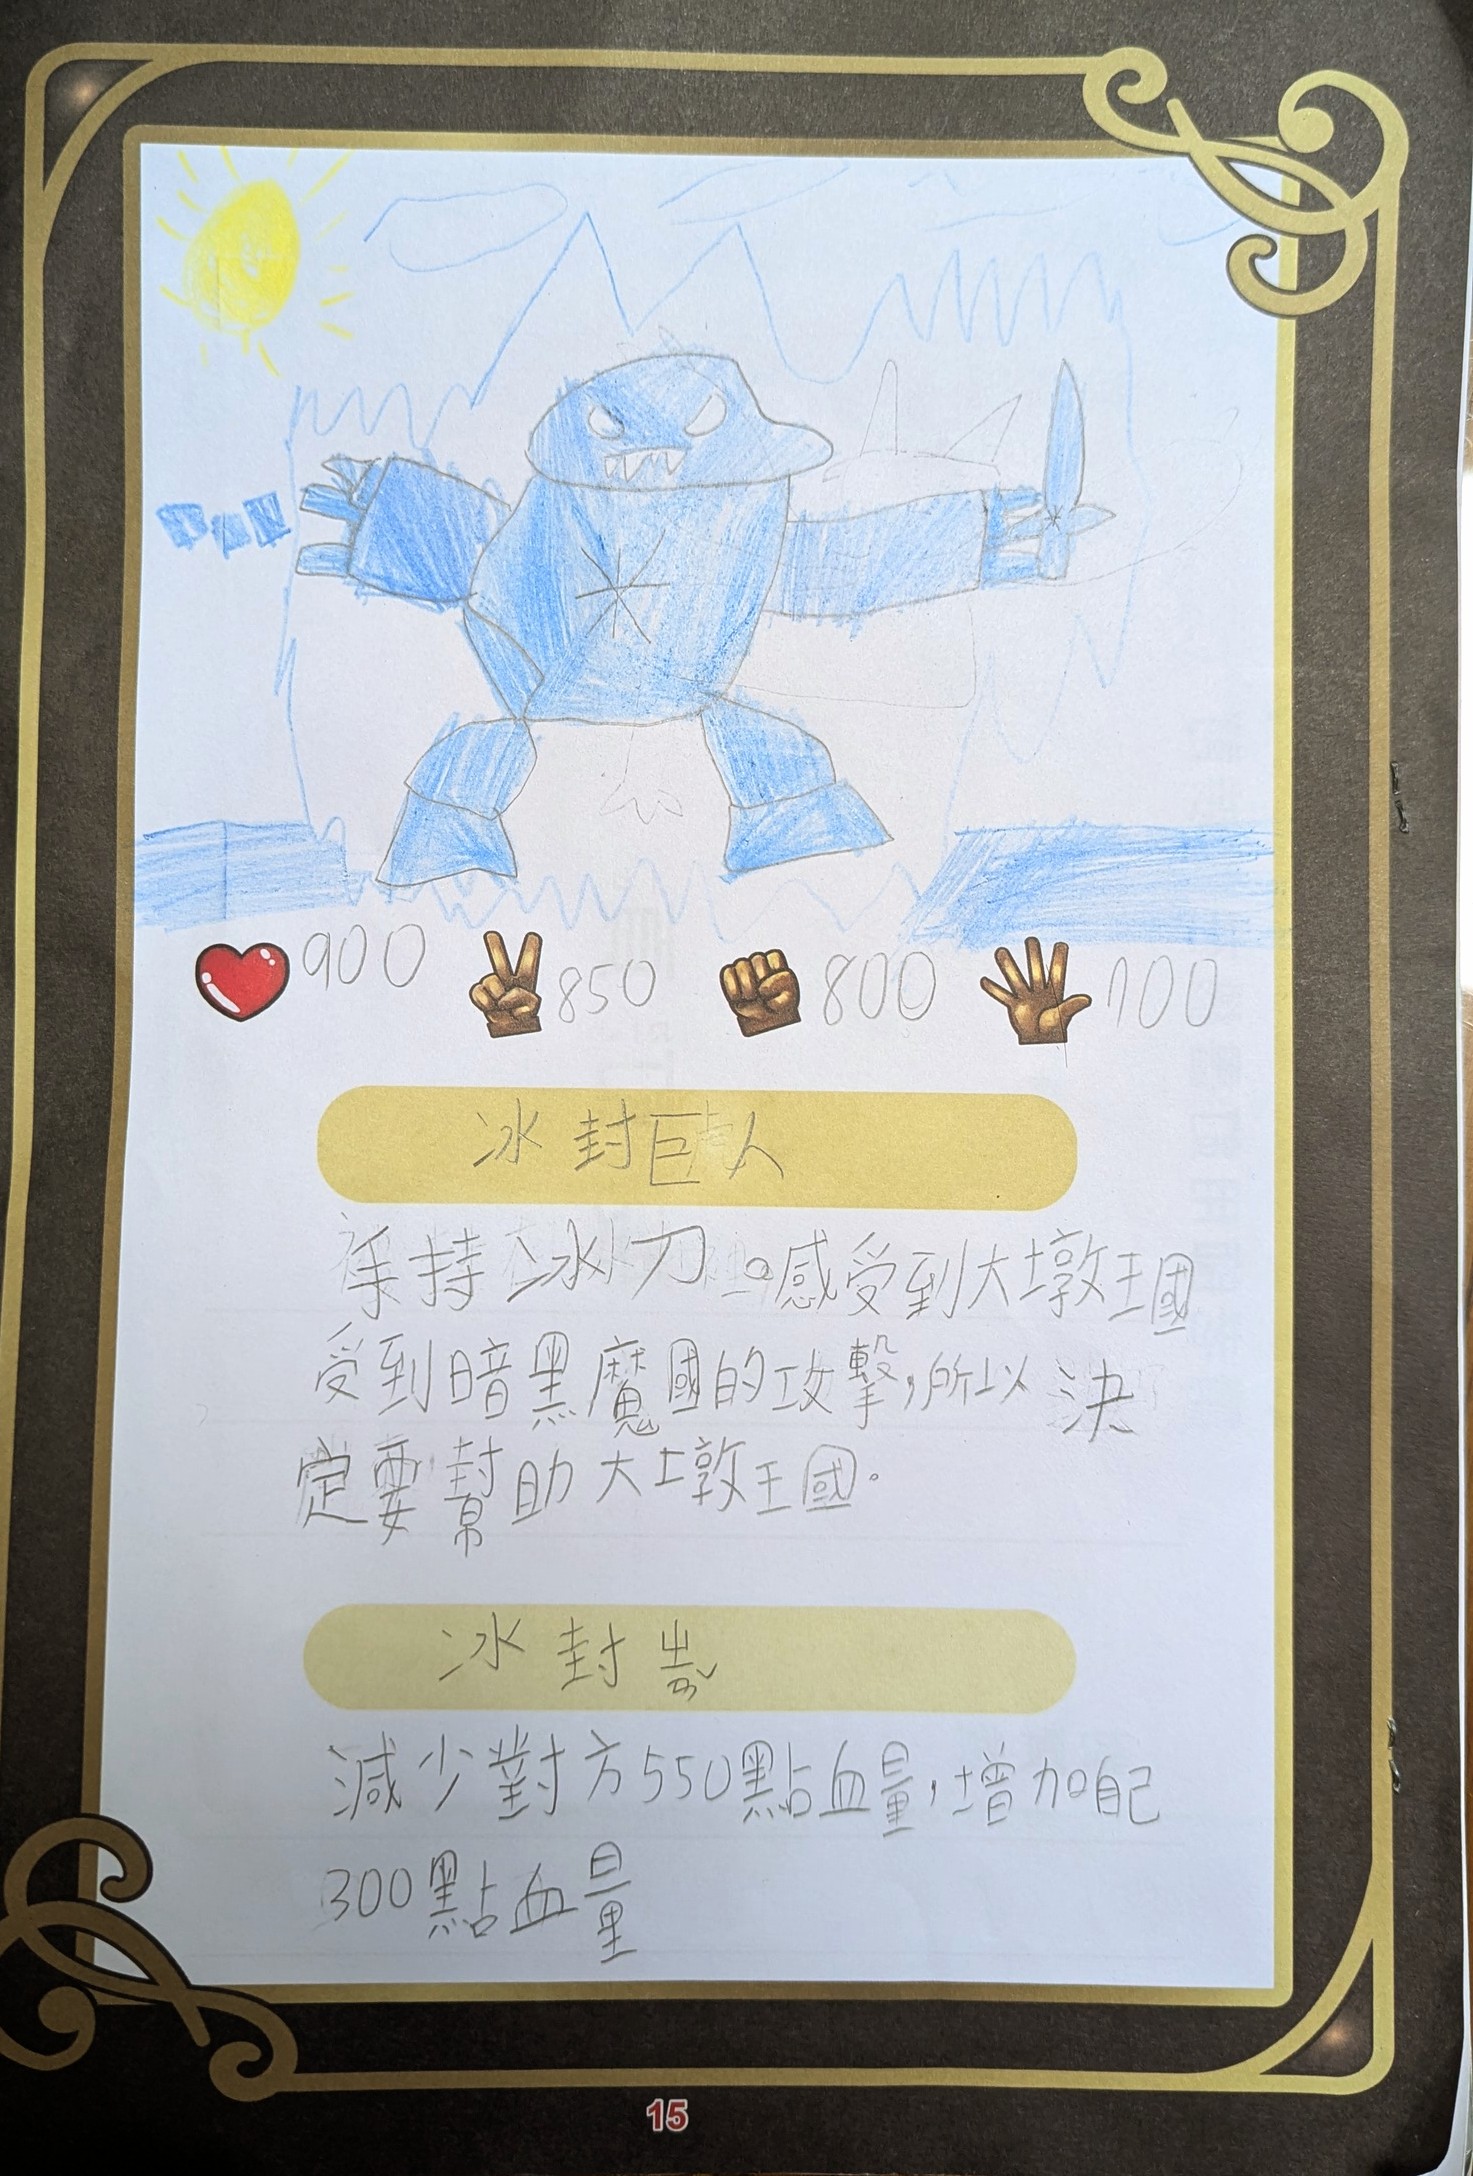 900 850 800 700
冰封巨人
持冰刀。感受到大墩王國
受到暗黑魔國的攻擊,所以決
定要幫助大墩王國。
冰封
減少對方550點血量,增加自己
300點血量
15